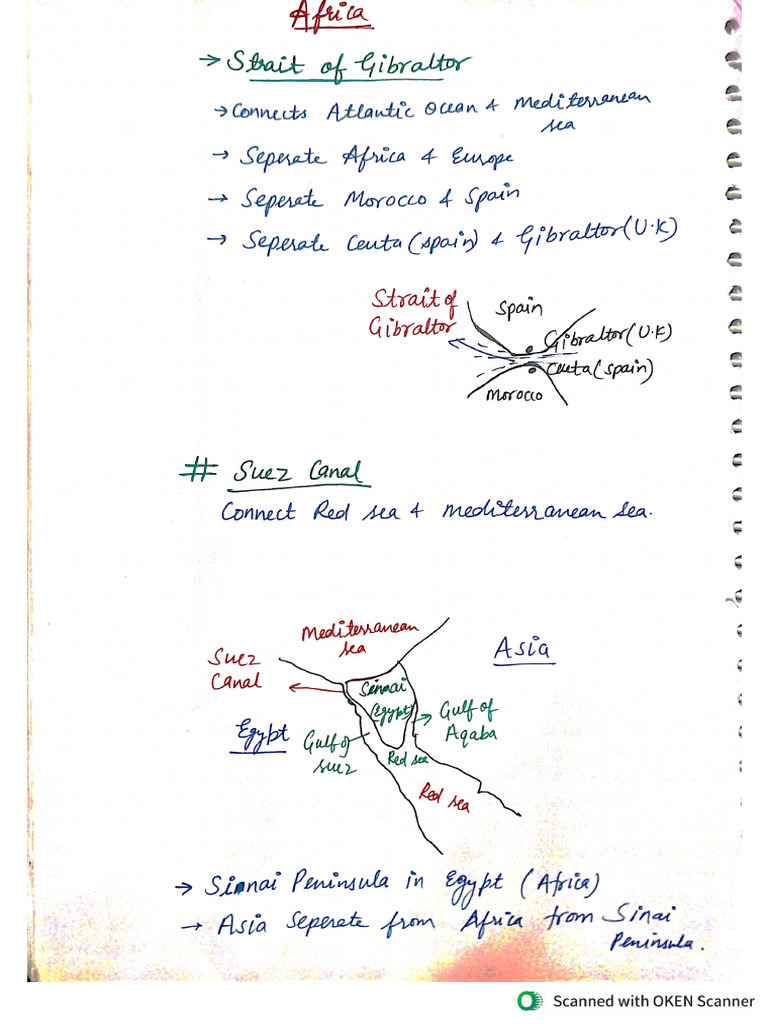 Africa
→ Strait of Gibraltor
→ Connects Atlantic Ocean & Mediterranean
sea
→ Seperate Africa & Europe
→ Seperate Morocco & Spain
→ Seperate Ceuta (spain) & Gibraltor (U.K)
Strait of
Gibraltor
Spain
Gibraltor (U.K)
Ceuta (spain)
Morocco
# Suez Canal
Connect Red sea & mediterranean sea.
Mediterranean
sea
Asia
Suez
Canal
Sinnai
(Egypt)
Gulf of
Aqaba
Egypt
Gulf of
suez
Red sea
Red sea
→ Sinnai Peninsula in Egypt (Africa)
→ Asia seperate from Africa from Sinai
Peninsula.
Scanned with OKEN Scanner